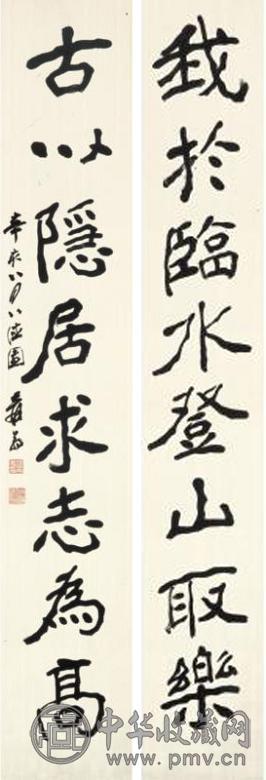 我於臨水登山取樂
古以隱居求志為高
辛亥八月八德園 爰翁
中华收藏网
www.pmv.cn